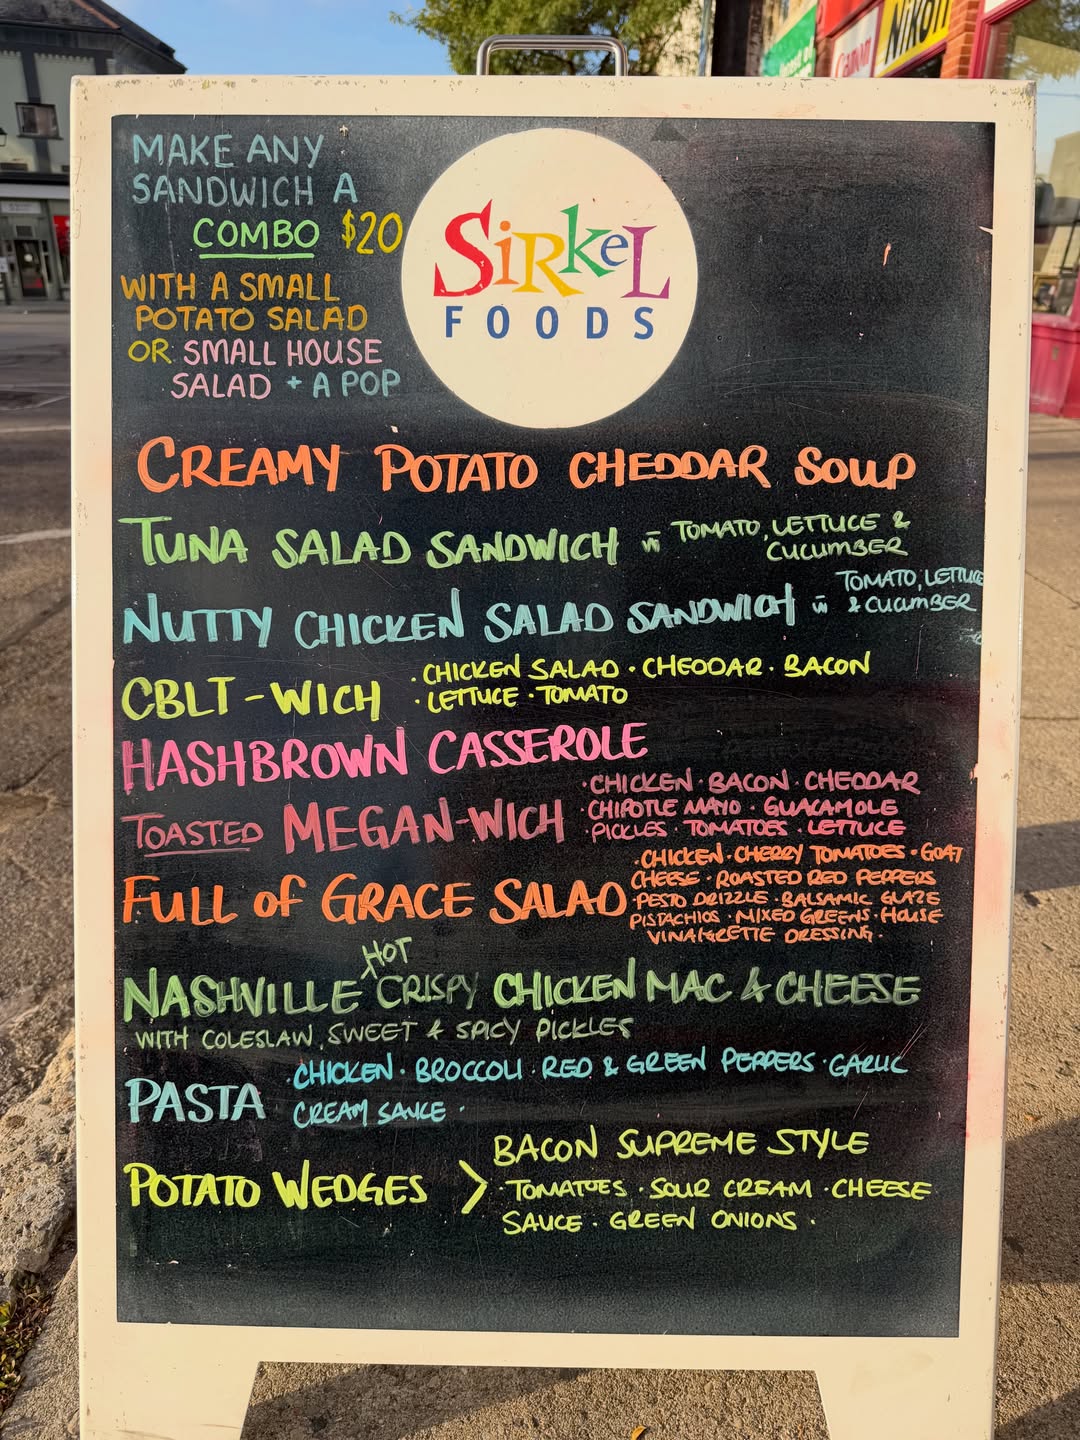 Canon
Nikon
MAKE ANY
SANDWICH A
COMBO $20
WITH A SMALL
POTATO SALAD
OR SMALL HOUSE
SALAD + A POP
SiRKeL
FOODS
CREAMY POTATO CHEDDAR SOUP
TUNA SALAD SANDWICH w̄ TOMATO, LETTUCE &
CUCUMBER
NUTTY CHICKEN SALAD SANDWICH w̄ TOMATO, LETTUCE
& CUCUMBER
CBLT-WICH · CHICKEN SALAD · CHEDDAR · BACON
· LETTUCE · TOMATO
HASHBROWN CASSEROLE
TOASTED MEGAN-WICH · CHICKEN · BACON · CHEDDAR
· CHIPOTLE MAYO · GUACAMOLE
· PICKLES · TOMATOES · LETTUCE
FULL of GRACE SALAD · CHICKEN · CHERRY TOMATOES · GOAT
CHEESE · ROASTED RED PEPPERS
· PESTO DRIZZLE · BALSAMIC GLAZE
PISTACHIOS · MIXED GREENS · HOUSE
VINAIGRETTE DRESSING ·
NASHVILLE HOT CRISPY CHICKEN MAC & CHEESE
WITH COLESLAW, SWEET & SPICY PICKLES
PASTA · CHICKEN · BROCCOLI · RED & GREEN PEPPERS · GARLIC
CREAM SAUCE ·
POTATO WEDGES > BACON SUPREME STYLE
· TOMATOES · SOUR CREAM · CHEESE
SAUCE · GREEN ONIONS ·